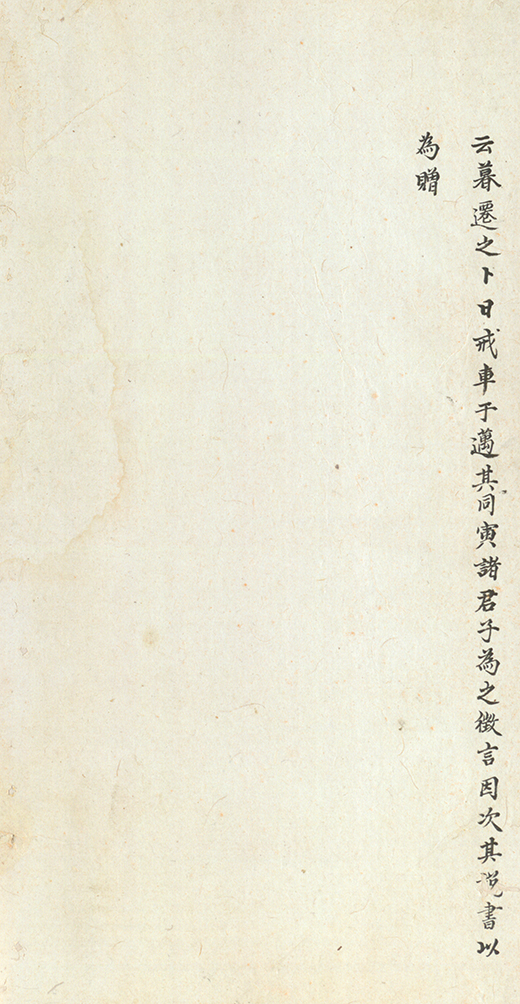 云暮遷之卜日戒車于邁其同寅諸君子為之徵言因次其說書以
為贈